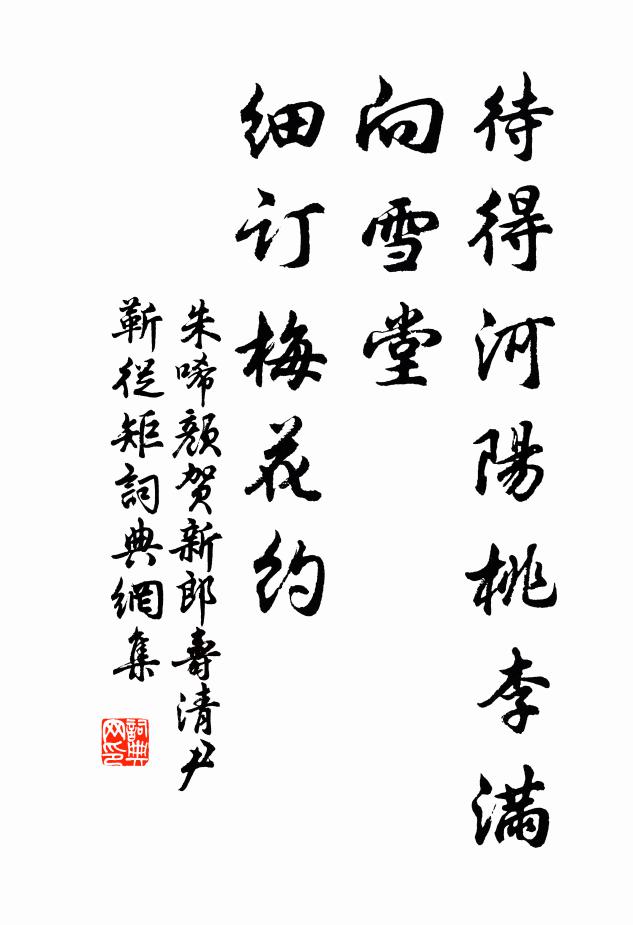 待得河陽桃李满
向雪堂
细订梅花约
朱唏颜贺新郎壽清尹
靳從矩詞典網集
詞典网印